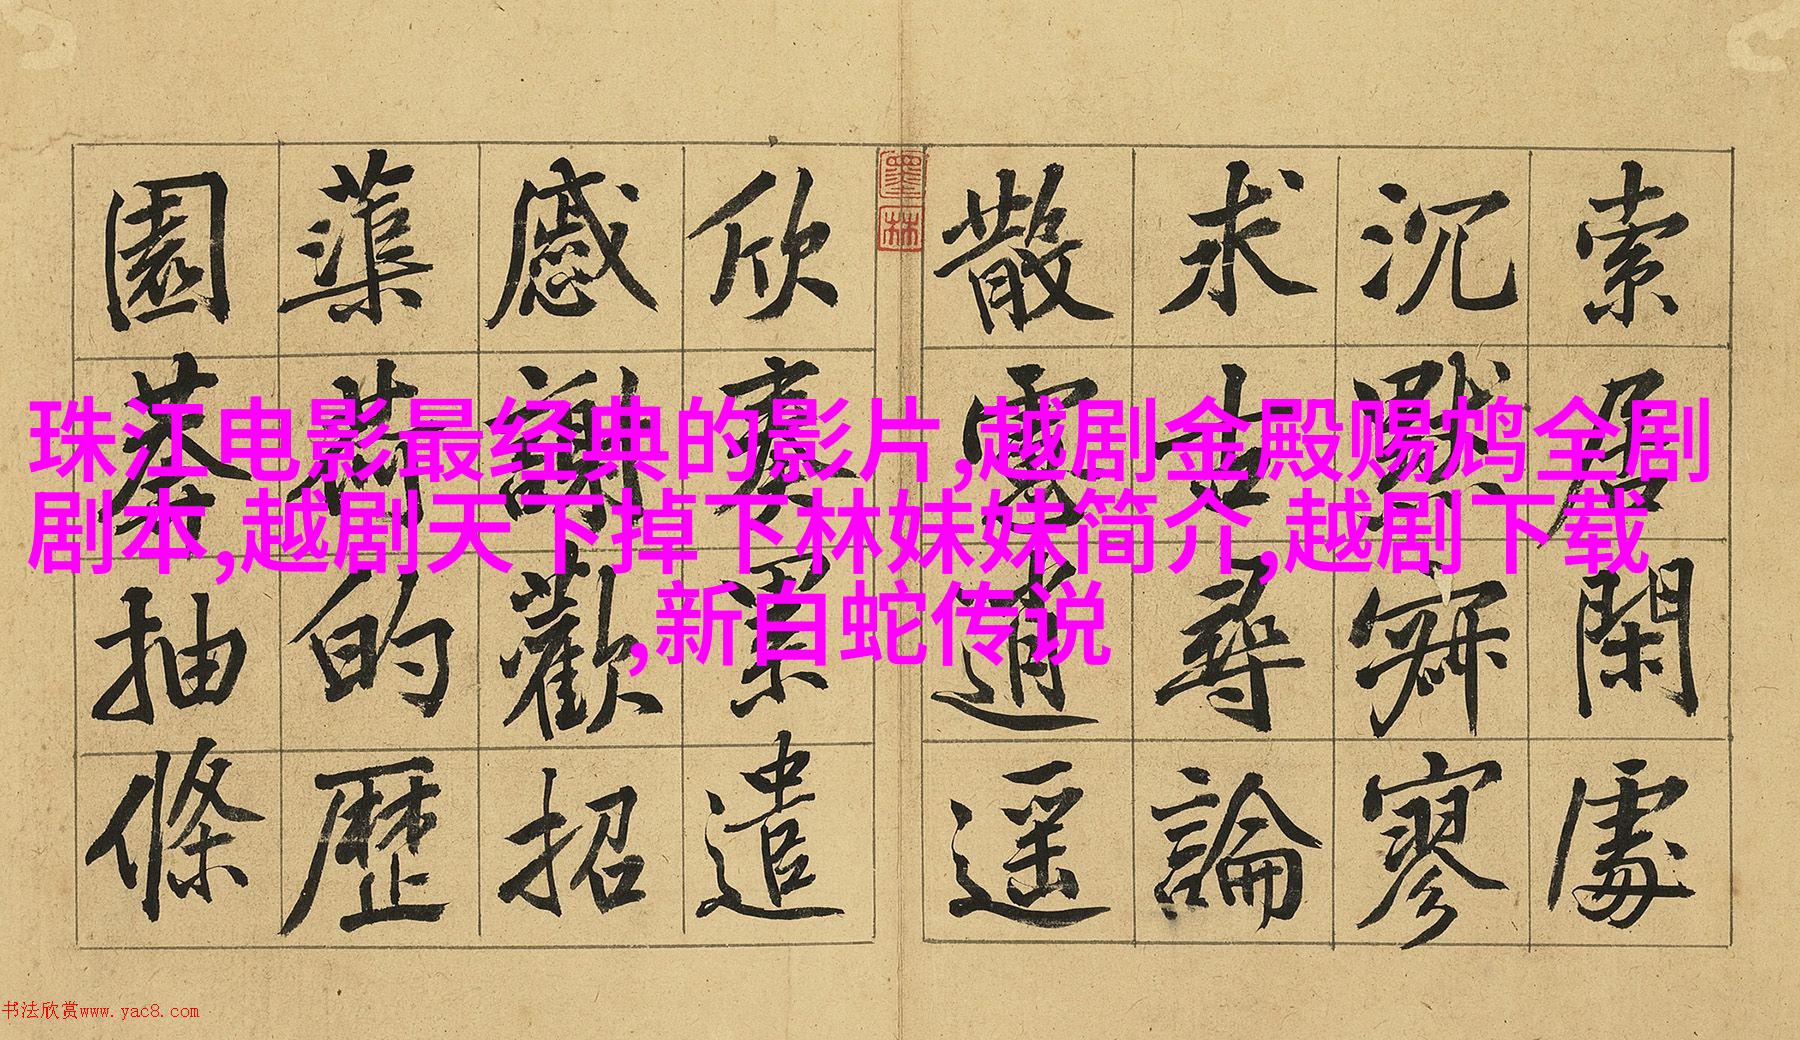 珠江电影最经典的影片,越剧金殿赐鸩全剧
剧本,越剧天下掉下林妹妹简介,越剧下载
,新白蛇传说
索居閑處
沉默寂寥
求古尋論
散慮逍遥
欣奏累遣
慼謝歡招
蕖荷的歷
園莽抽條
墨林
书法欣赏www.yac8.com